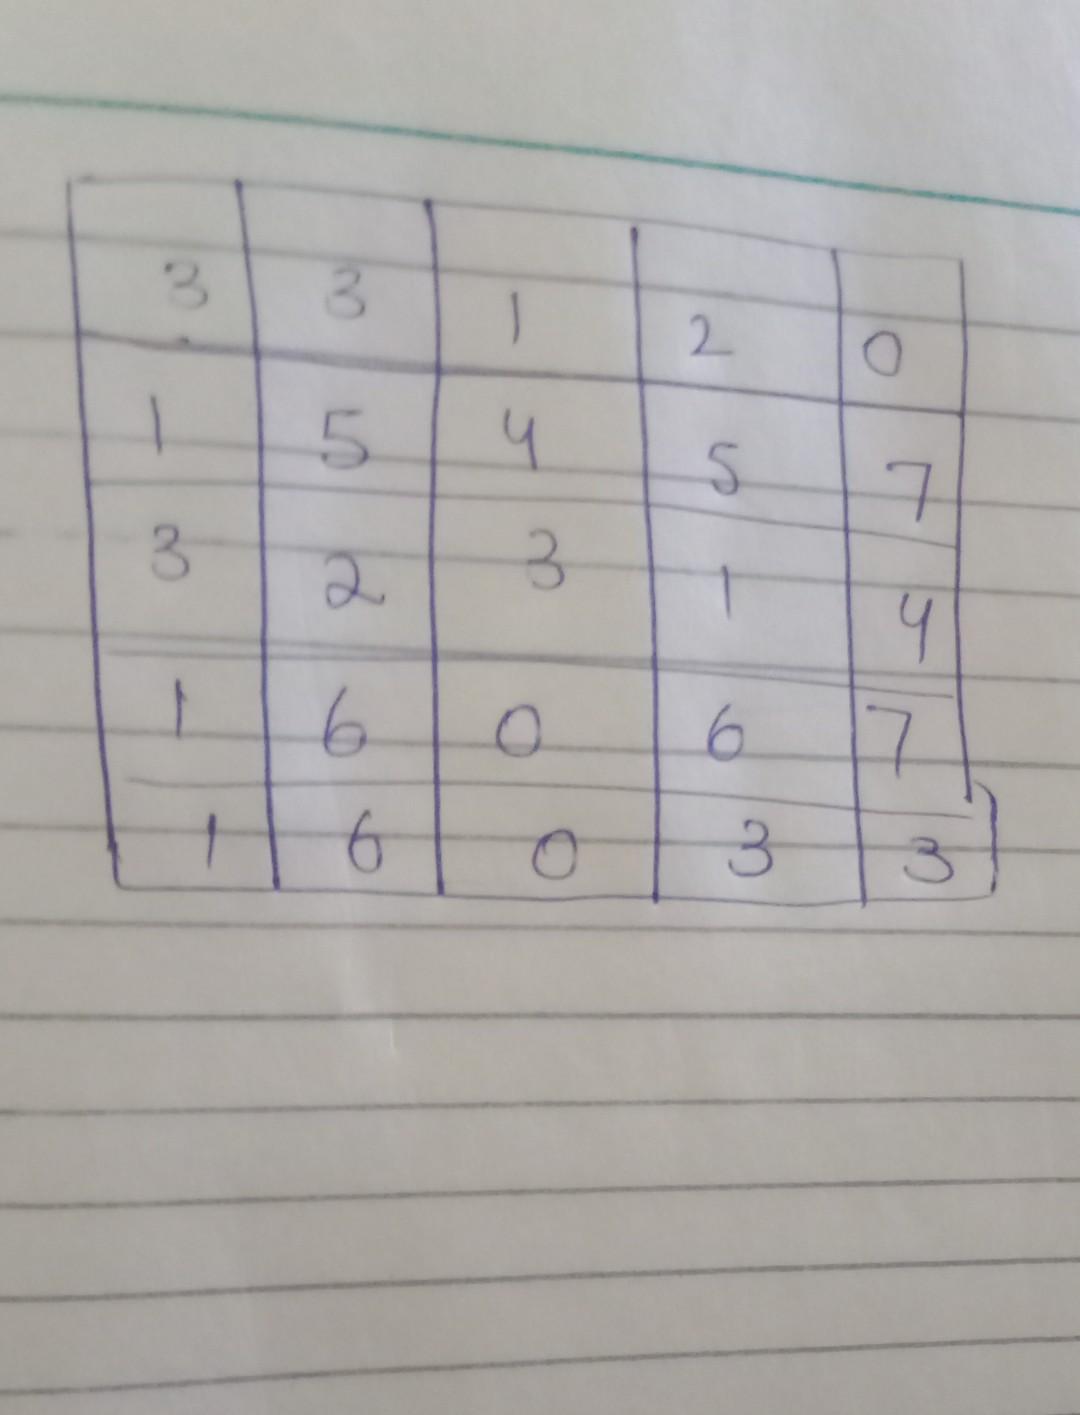 3 3 1 2 0
1 5 4 5 7
3 2 3 1 4
1 6 0 6 7
1 6 0 3 3